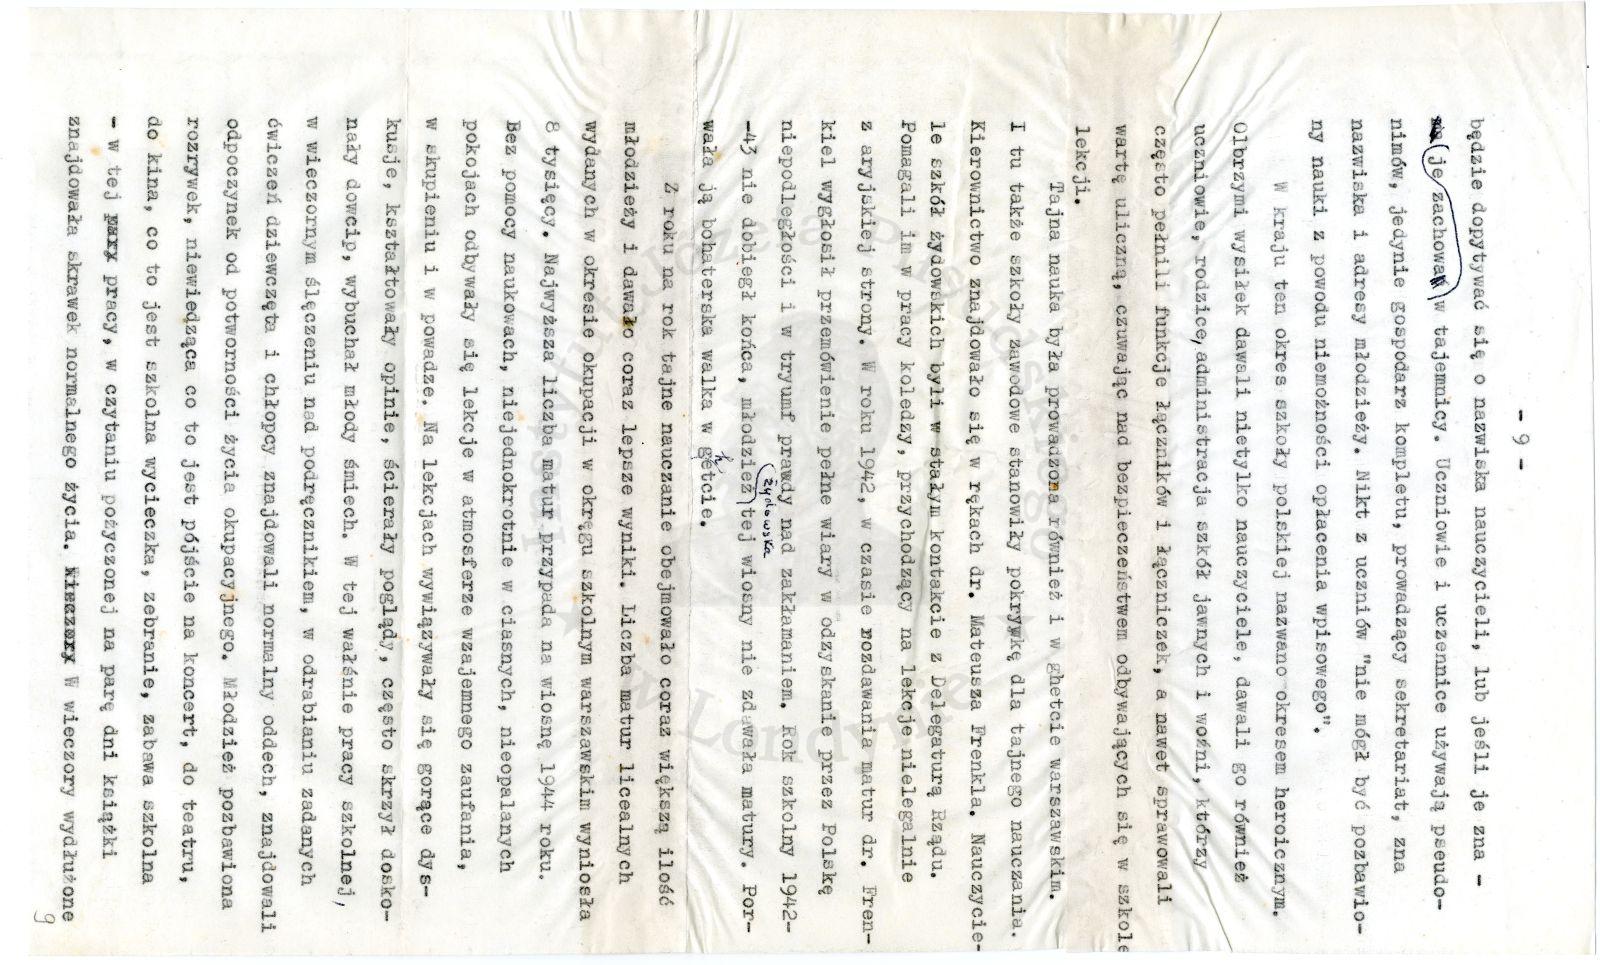 - 9 -
będzie dopytywać się o nazwiska nauczycieli, lub jeśli je zna -
je zachować w tajemnicy. Uczniowie i uczennice używają pseudo-
nimów, jedynie gospodarz kompletu, prowadzący sekretariat, zna
nazwiska i adresy młodzieży. Nikt z uczniów "nie mógł być pozbawio-
ny nauki z powodu niemożności opłacenia wpisowego".
W kraju ten okres szkoły polskiej nazwano okresem heroicznym.
Olbrzymi wysiłek dawali nietylko nauczyciele, dawali go również
uczniowie, rodzice, administracja szkół jawnych i woźni, którzy
często pełnili funkcje łączników i łączniczek, a nawet sprawowali
wartę uliczną, czuwając nad bezpieczeństwem odbywających się w szkole
lekcji.
Tajna nauka była prowadzona również i w ghetcie warszawskim.
I tu także szkoły zawodowe stanowiły pokrywkę dla tajnego nauczania.
Kierownictwo znajdowało się w rękach dr. Mateusza Frenkla. Nauczycie-
le szkół żydowskich byli w stałym kontakcie z Delegaturą Rządu.
Pomagali im w pracy koledzy, przychodzący na lekcje nielegalnie
z aryjskiej strony. W roku 1942, w czasie rozdawania matur dr. Fren-
kiel wygłosił przemówienie pełne wiary w odzyskanie przez Polskę
niepodległości i w tryumf prawdy nad zakłamaniem. Rok szkolny 1942-
-43 nie dobiegł końca, młodzież żydowska tej wiosny nie zdawała matury. Por-
wała ją bohaterska walka w ghetcie.
Z roku na rok tajne nauczanie obejmowało coraz większą ilość
młodzieży i dawało coraz lepsze wyniki. Liczba matur licealnych
wydanych w okresie okupacji w okręgu szkolnym warszawskim wyniosła
8 tysięcy. Najwyższa liczba matur przypada na wiosnę 1944 roku.
Bez pomocy naukowach, niejednokrotnie w ciasnych, nieopalanych
pokojach odbywały się lekcje w atmosferze wzajemnego zaufania,
w skupieniu i w powadze. Na lekcjach wywiązywały się gorące dys-
kusje, kształtowały opinie, ścierały poglądy, często skrzył dosko-
nały dowcip, wybuchał młody śmiech. W tej wałśnie pracy szkolnej,
w wieczornym ślęczeniu nad podręcznikiem, w odrabianiu zadanych
ćwiczeń dziewczęta i chłopcy znajdowali normalny oddech, znajdowali
odpoczynek od potworności życia okupacyjnego. Młodzież pozbawiona
rozrywek, niewiedząca co to jest pójście na koncert, do teatru,
do kina, co to jest szkolna wycieczka, zebranie, zabawa szkolna
- w tej pracy, w czytaniu pożyczonej na parę dni książki
znajdowała skrawek normalnego życia. W wieczory wydłużone
9
Instytut Józefa Piłsudskiego
w Londynie